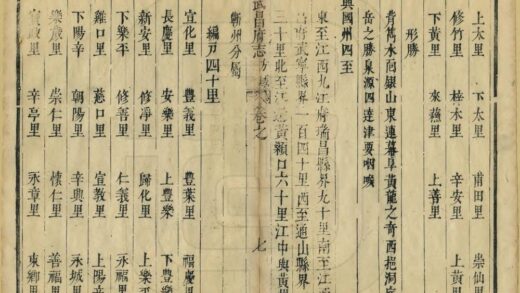 上太里 下太里 甫田里 崇仙里
修竹里 桂水里 辛安里 上黃里
下黃里 來蘓里 上善里
形勝
水向銀山東連幕阜黃龍之奇西挹洞
岳之勝泉源四達津要咽喉
興國州四至
東至江西九江府瑞昌縣界九十里南至江
昌府武寧縣界一百四十里西至通山縣界
三十里北至江邊黃顙口六十里江中與黃
武昌府志 卷之 七
蘄州分屬
編戶四十里
宣化里 豊義里 豊葉里 福慶里
長慶里 安樂里 上豊樂 下豊樂
新安里 修淨里 歸化里 上樂平
下樂平 修善里 仁義里 永福里
雞口里 慈口里 宣教里 上陽辛
下陽辛 朝陽里 辛興里 永城里
樂歲里 崇仁里 慎仁里 善福里
宣政里 辛亭里 永章里 東鄉